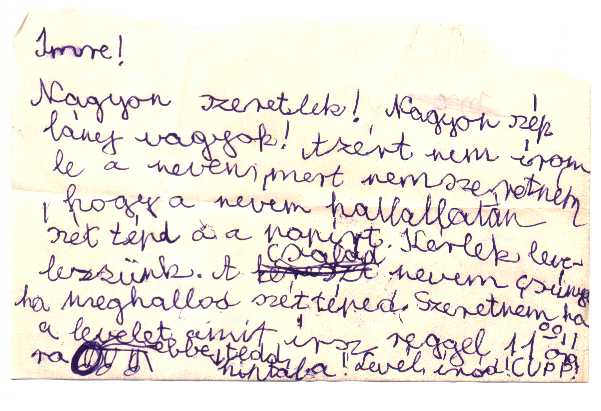 Imre!
Nagyon szeretlek! Nagyon szép
lány vagyok! Azért nem írom
le a nevem, mert nem szeretném
, hogy a nevem hallallatán
szét tépd a papírt. Kérlek leve-
lezzünk. A család nevem csúnya
ha meghallod széttéped. Szeretném ha
a levelet amit írsz reggel 11
ra ebbe tedd
! Levél íród! CUPP!